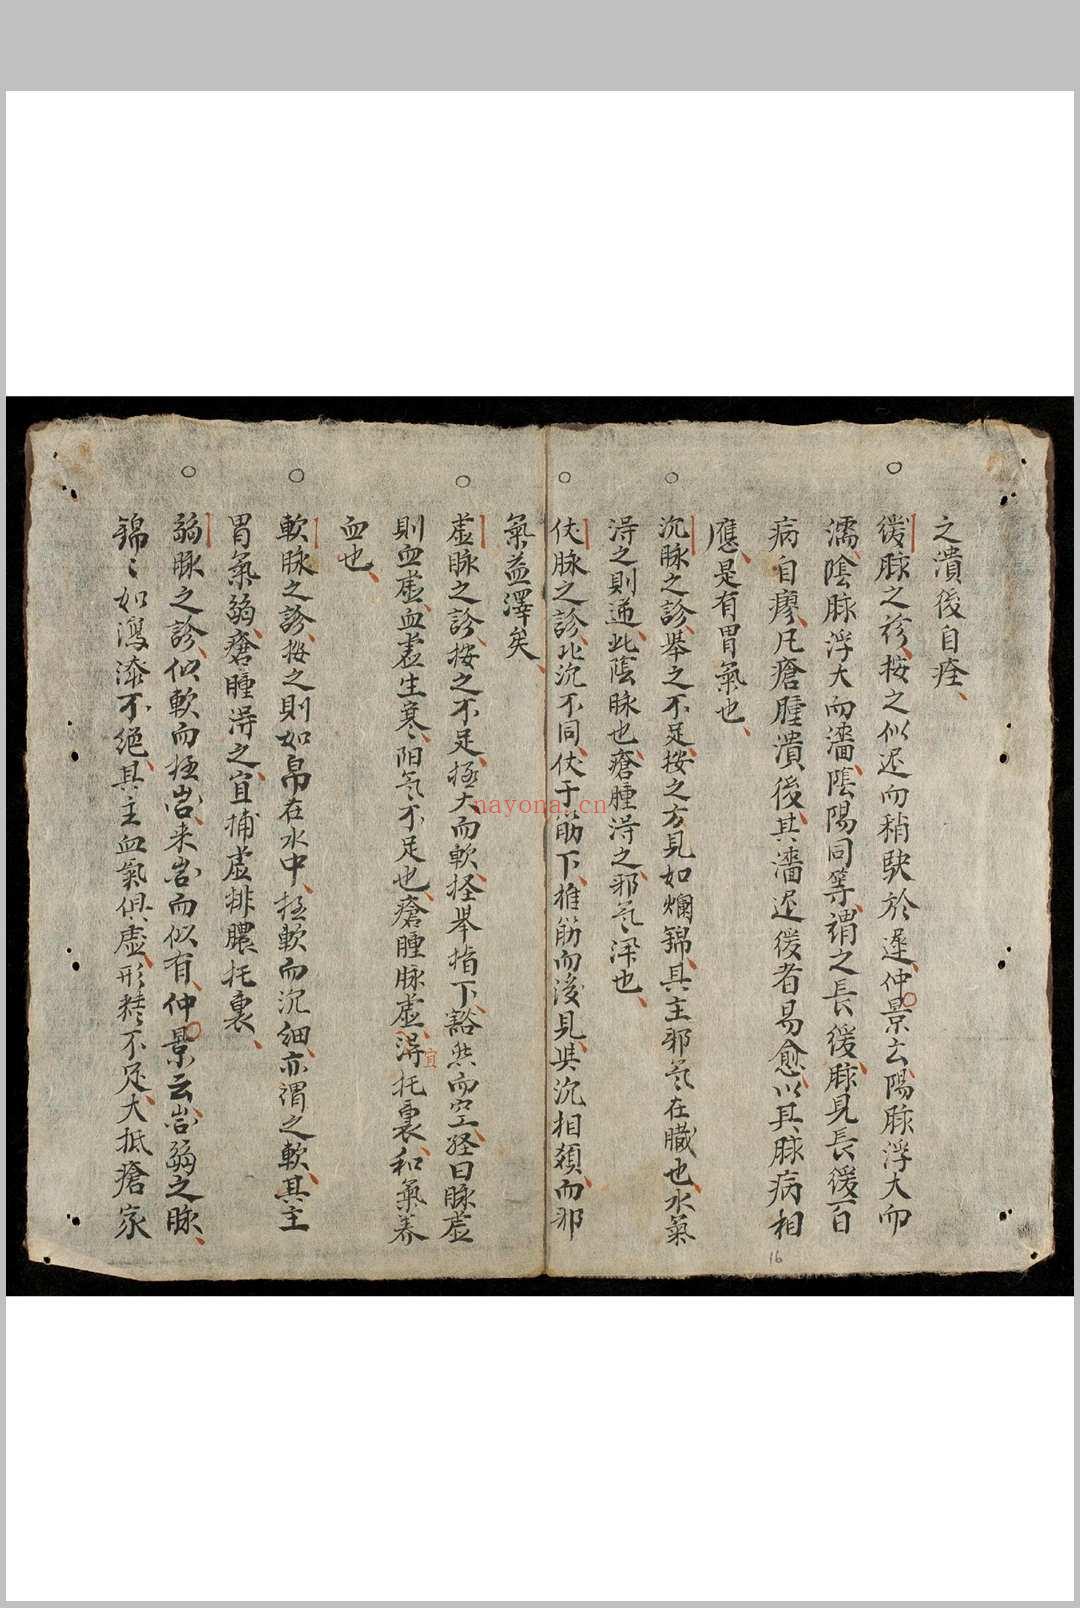 之潰後自痊
緩脉之診按之似遲而稍駃於遲仲景云陽脉浮大而
濡隂脉浮大而濡隂陽同等謂之長緩脉見長緩百
病自瘳凡瘡腫潰後其濡遲緩者易愈以其脉病相
應是有胃氣也
沉脉之診舉之不足按之方見如爛錦其主邪氣在臓也水氣
淂之則逆此隂脉也瘡腫淂之邪氣深也
伏脉之診比沉不同伏于筋下推筋而後見其沉相類而邪
氣益深矣
虚脉之診按之不足極大而軟挃舉指下豁然而空経曰脉虚
則血虚血虚生寒陽氣不足也瘡腫脉虚淂托裏和氣养
宜
血也
軟脉之診按之則如帛在水中極軟而沉細亦謂之軟其主
胃氣弱瘡腫淂之宜補虚排膿托裏
弱脉之診似軟而極微来微而似有仲景云微弱之脉
錦〻如瀉漆不絕其主血氣俱虚形精不足大抵瘡家
16
nayona.cn